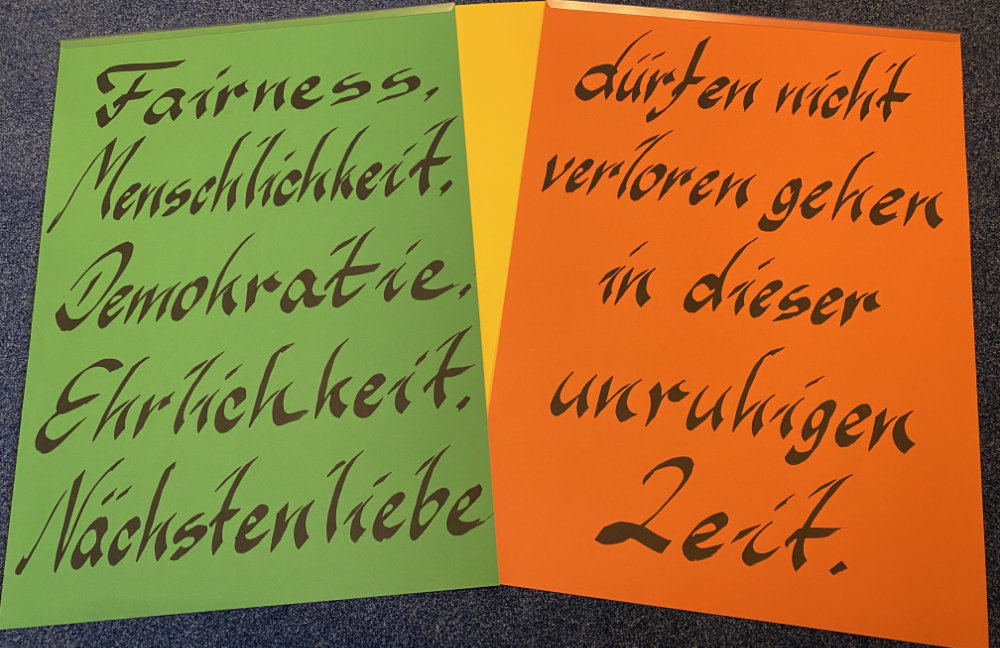 Fairness,
Menschlichkeit,
Demokratie,
Ehrlichkeit,
Nächstenliebe
dürfen nicht
verloren gehen
in dieser
unruhigen
Zeit.